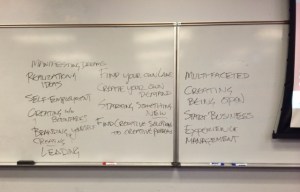 MANIFESTING DREAMS
REALIZATIONS/
IDEAS
SELF-EMPLOYMENT
CREATING
BRANDING YOURSELF
CREATING
LEADING
FIND YOUR OWN LANE
CREATE YOUR OWN
DEMAND
STARTING SOMETHING
NEW
FIND CREATIVE SOLUTION
TO CREATIVE PROBLEM
MULTI-FACETED
CREATING
BEING OPEN
START BUSINESS
EXPERIENCE
MANAGEMENT